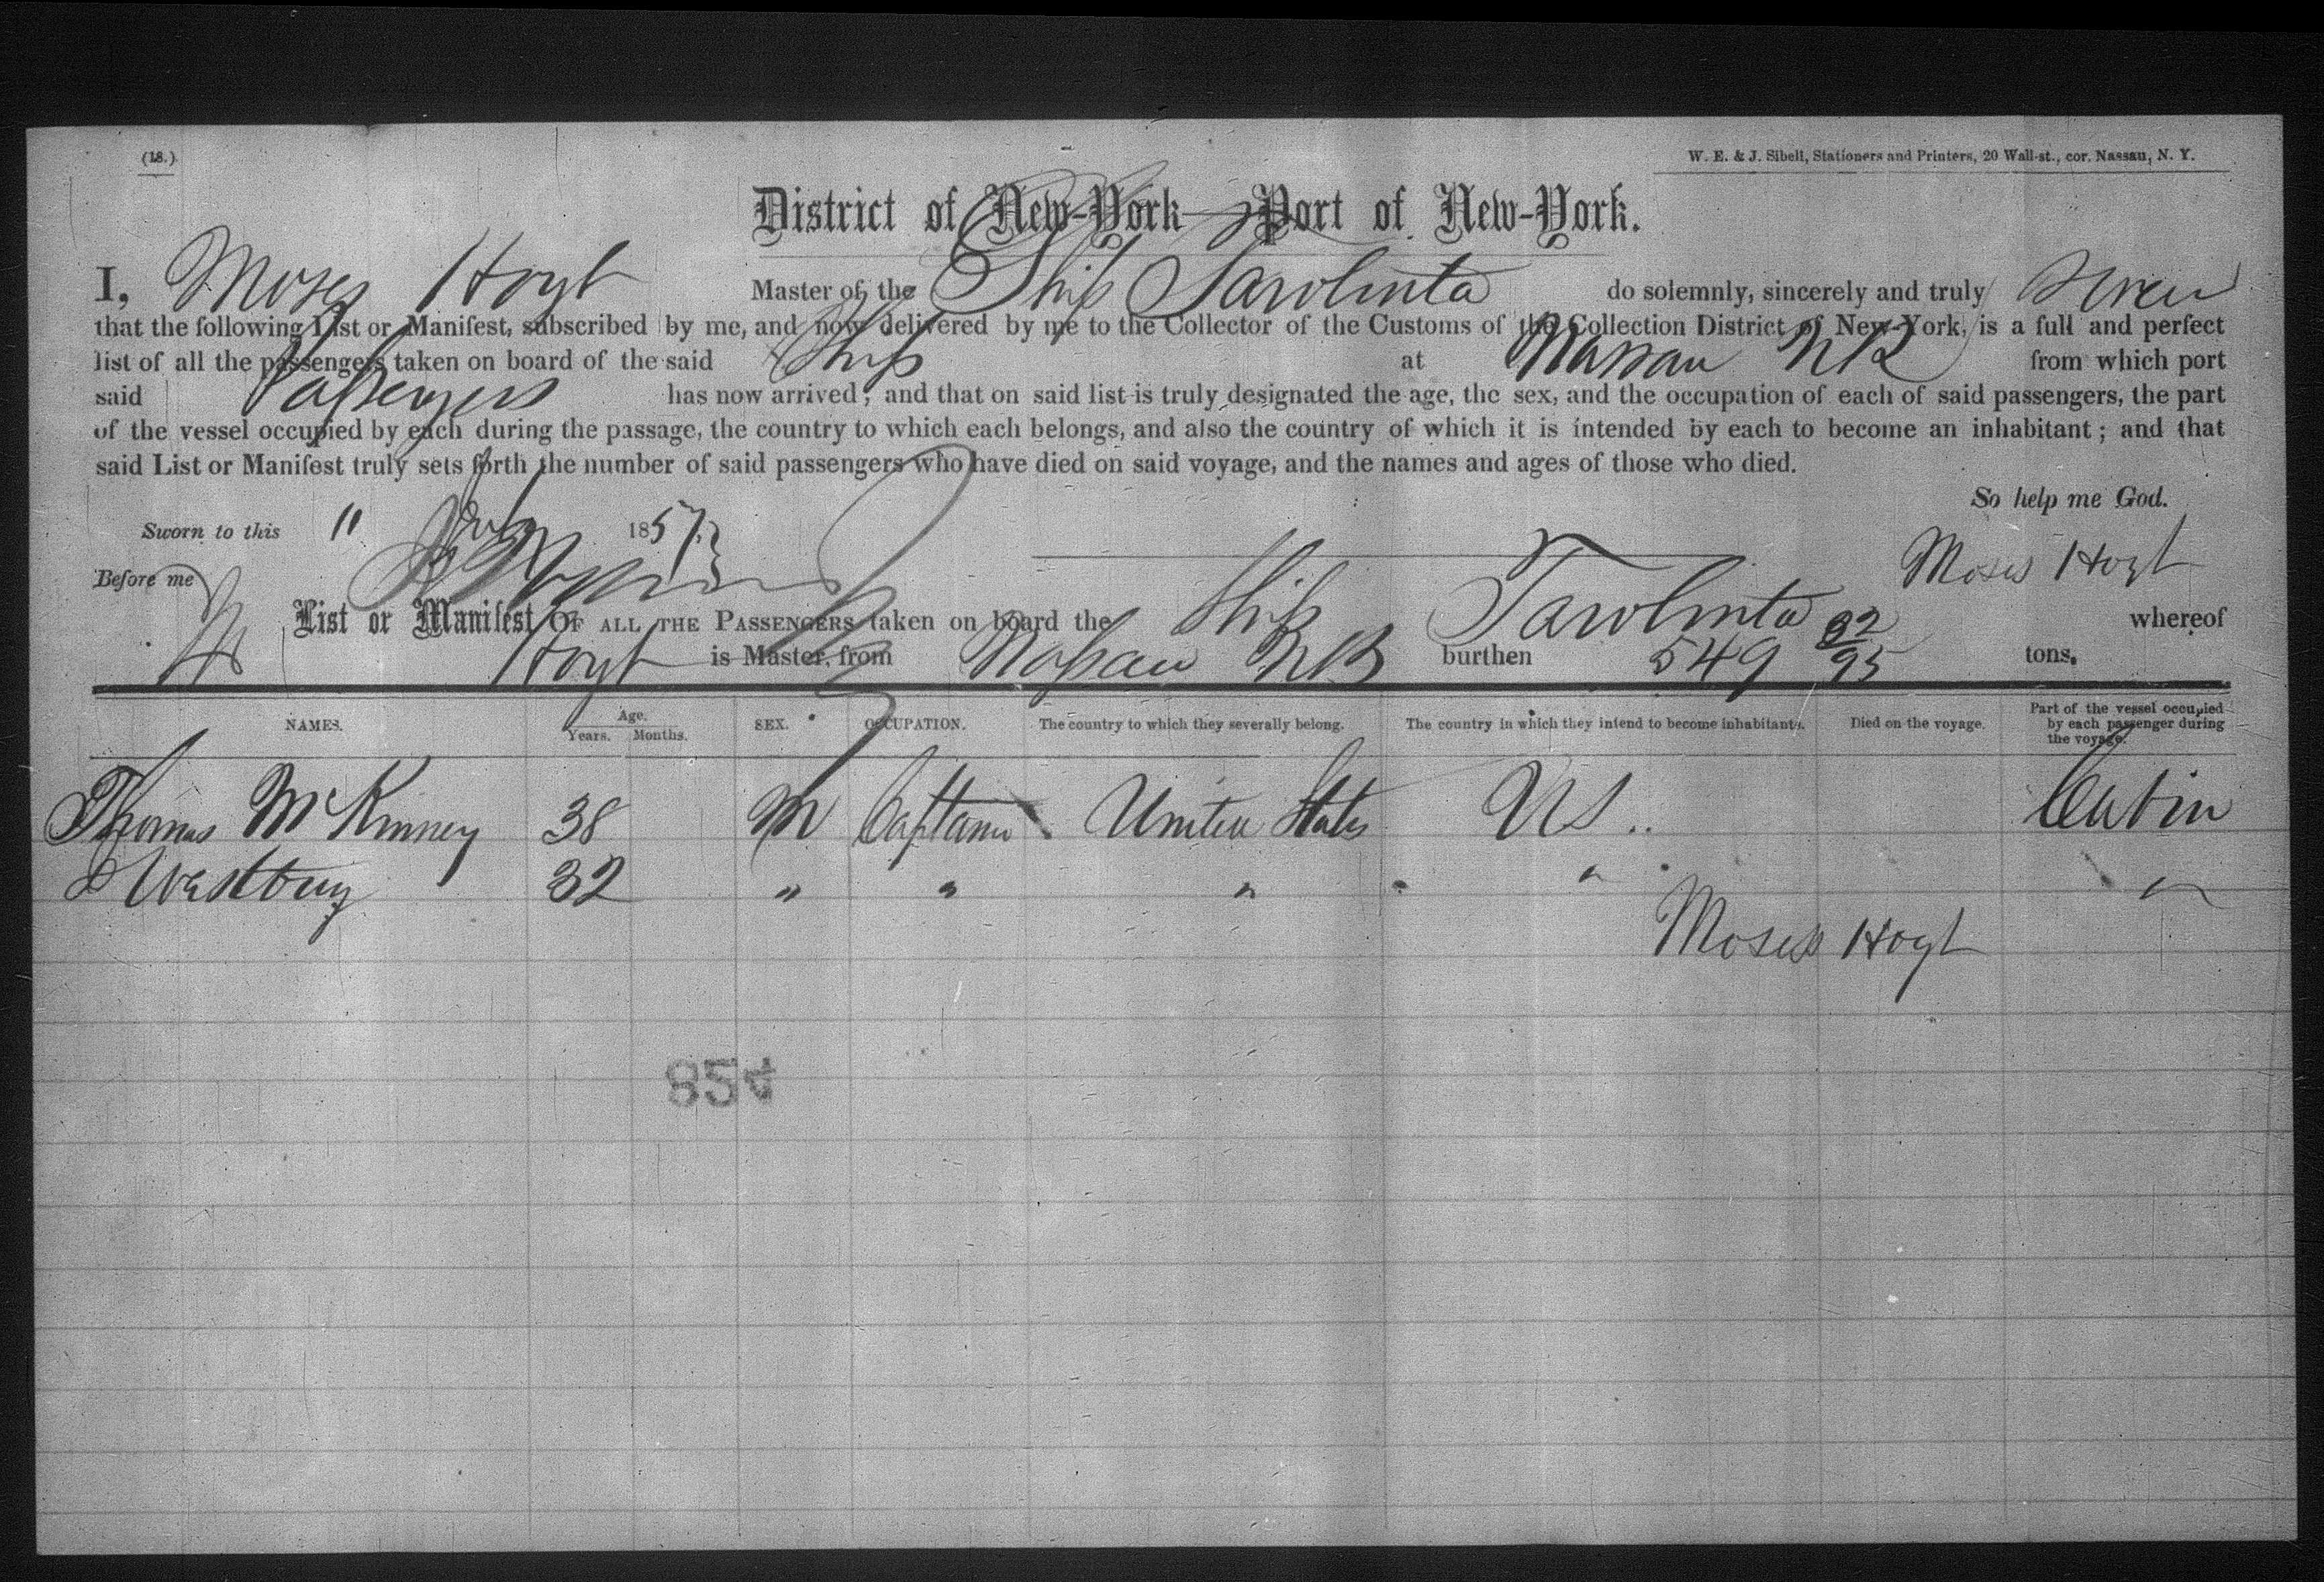 (18.)
W. E. & J. Sibell, Stationers and Printers, 20 Wall-st., cor. Nassau, N. Y.
District of New-York—Port of New-York.
I, Moses Hoyt Master of the Ship Tarolinta do solemnly, sincerely and truly swear
that the following List or Manifest, subscribed by me, and now delivered by me to the Collector of the Customs of the Collection District of New-York, is a full and perfect
list of all the passengers taken on board of the said Ship at Nassau from which port
said Passengers has now arrived; and that on said list is truly designated the age, the sex, and the occupation of each of said passengers, the part
of the vessel occupied by each during the passage, the country to which each belongs, and also the country of which it is intended by each to become an inhabitant; and that
said List or Manifest truly sets forth the number of said passengers who have died on said voyage, and the names and ages of those who died.
So help me God.
Sworn to this 11 July 1857
Moses Hoyt
Before me
List or Manifest OF ALL THE PASSENGERS taken on board the Ship Tarolinta whereof
Hoyt is Master, from Nassau burthen 549 32/95 tons.
NAMES. Age. Years. Months. SEX. OCCUPATION. The country to which they severally belong. The country in which they intend to become inhabitants. Died on the voyage. Part of the vessel occupied by each passenger during the voyage.
Thomas McKinney 38 M Captain United States US.. Cabin
Westbury 32 " " " " "
Moses Hoyt